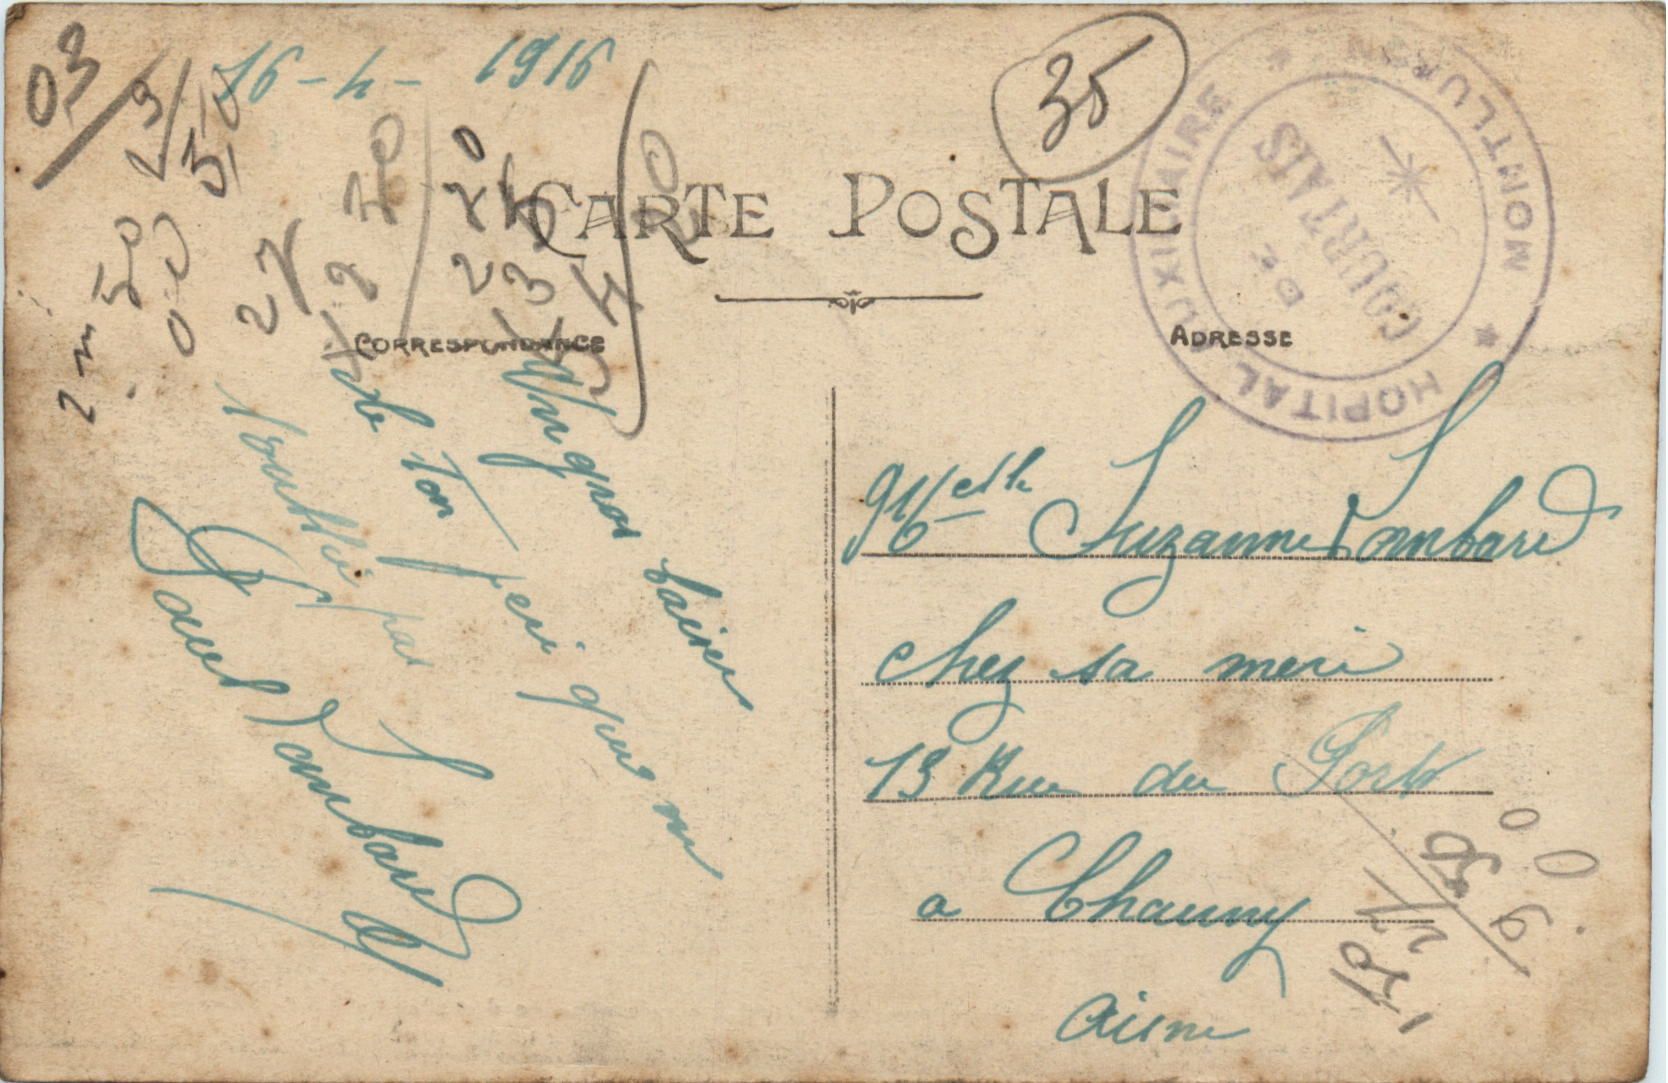 16-4-1916
35
CARTE POSTALE
HOPITAL AUXILIAIRE
MONTLUÇON
DE
COURTAIS
CORRESPONDANCE
ADRESSE
Un gros baiser
de ton peri que ne
t'oublie pas
Paul Lombard
Melle Suzanne Lombard
chez sa meri
13 Rue du Port
a Chauny
Aisne